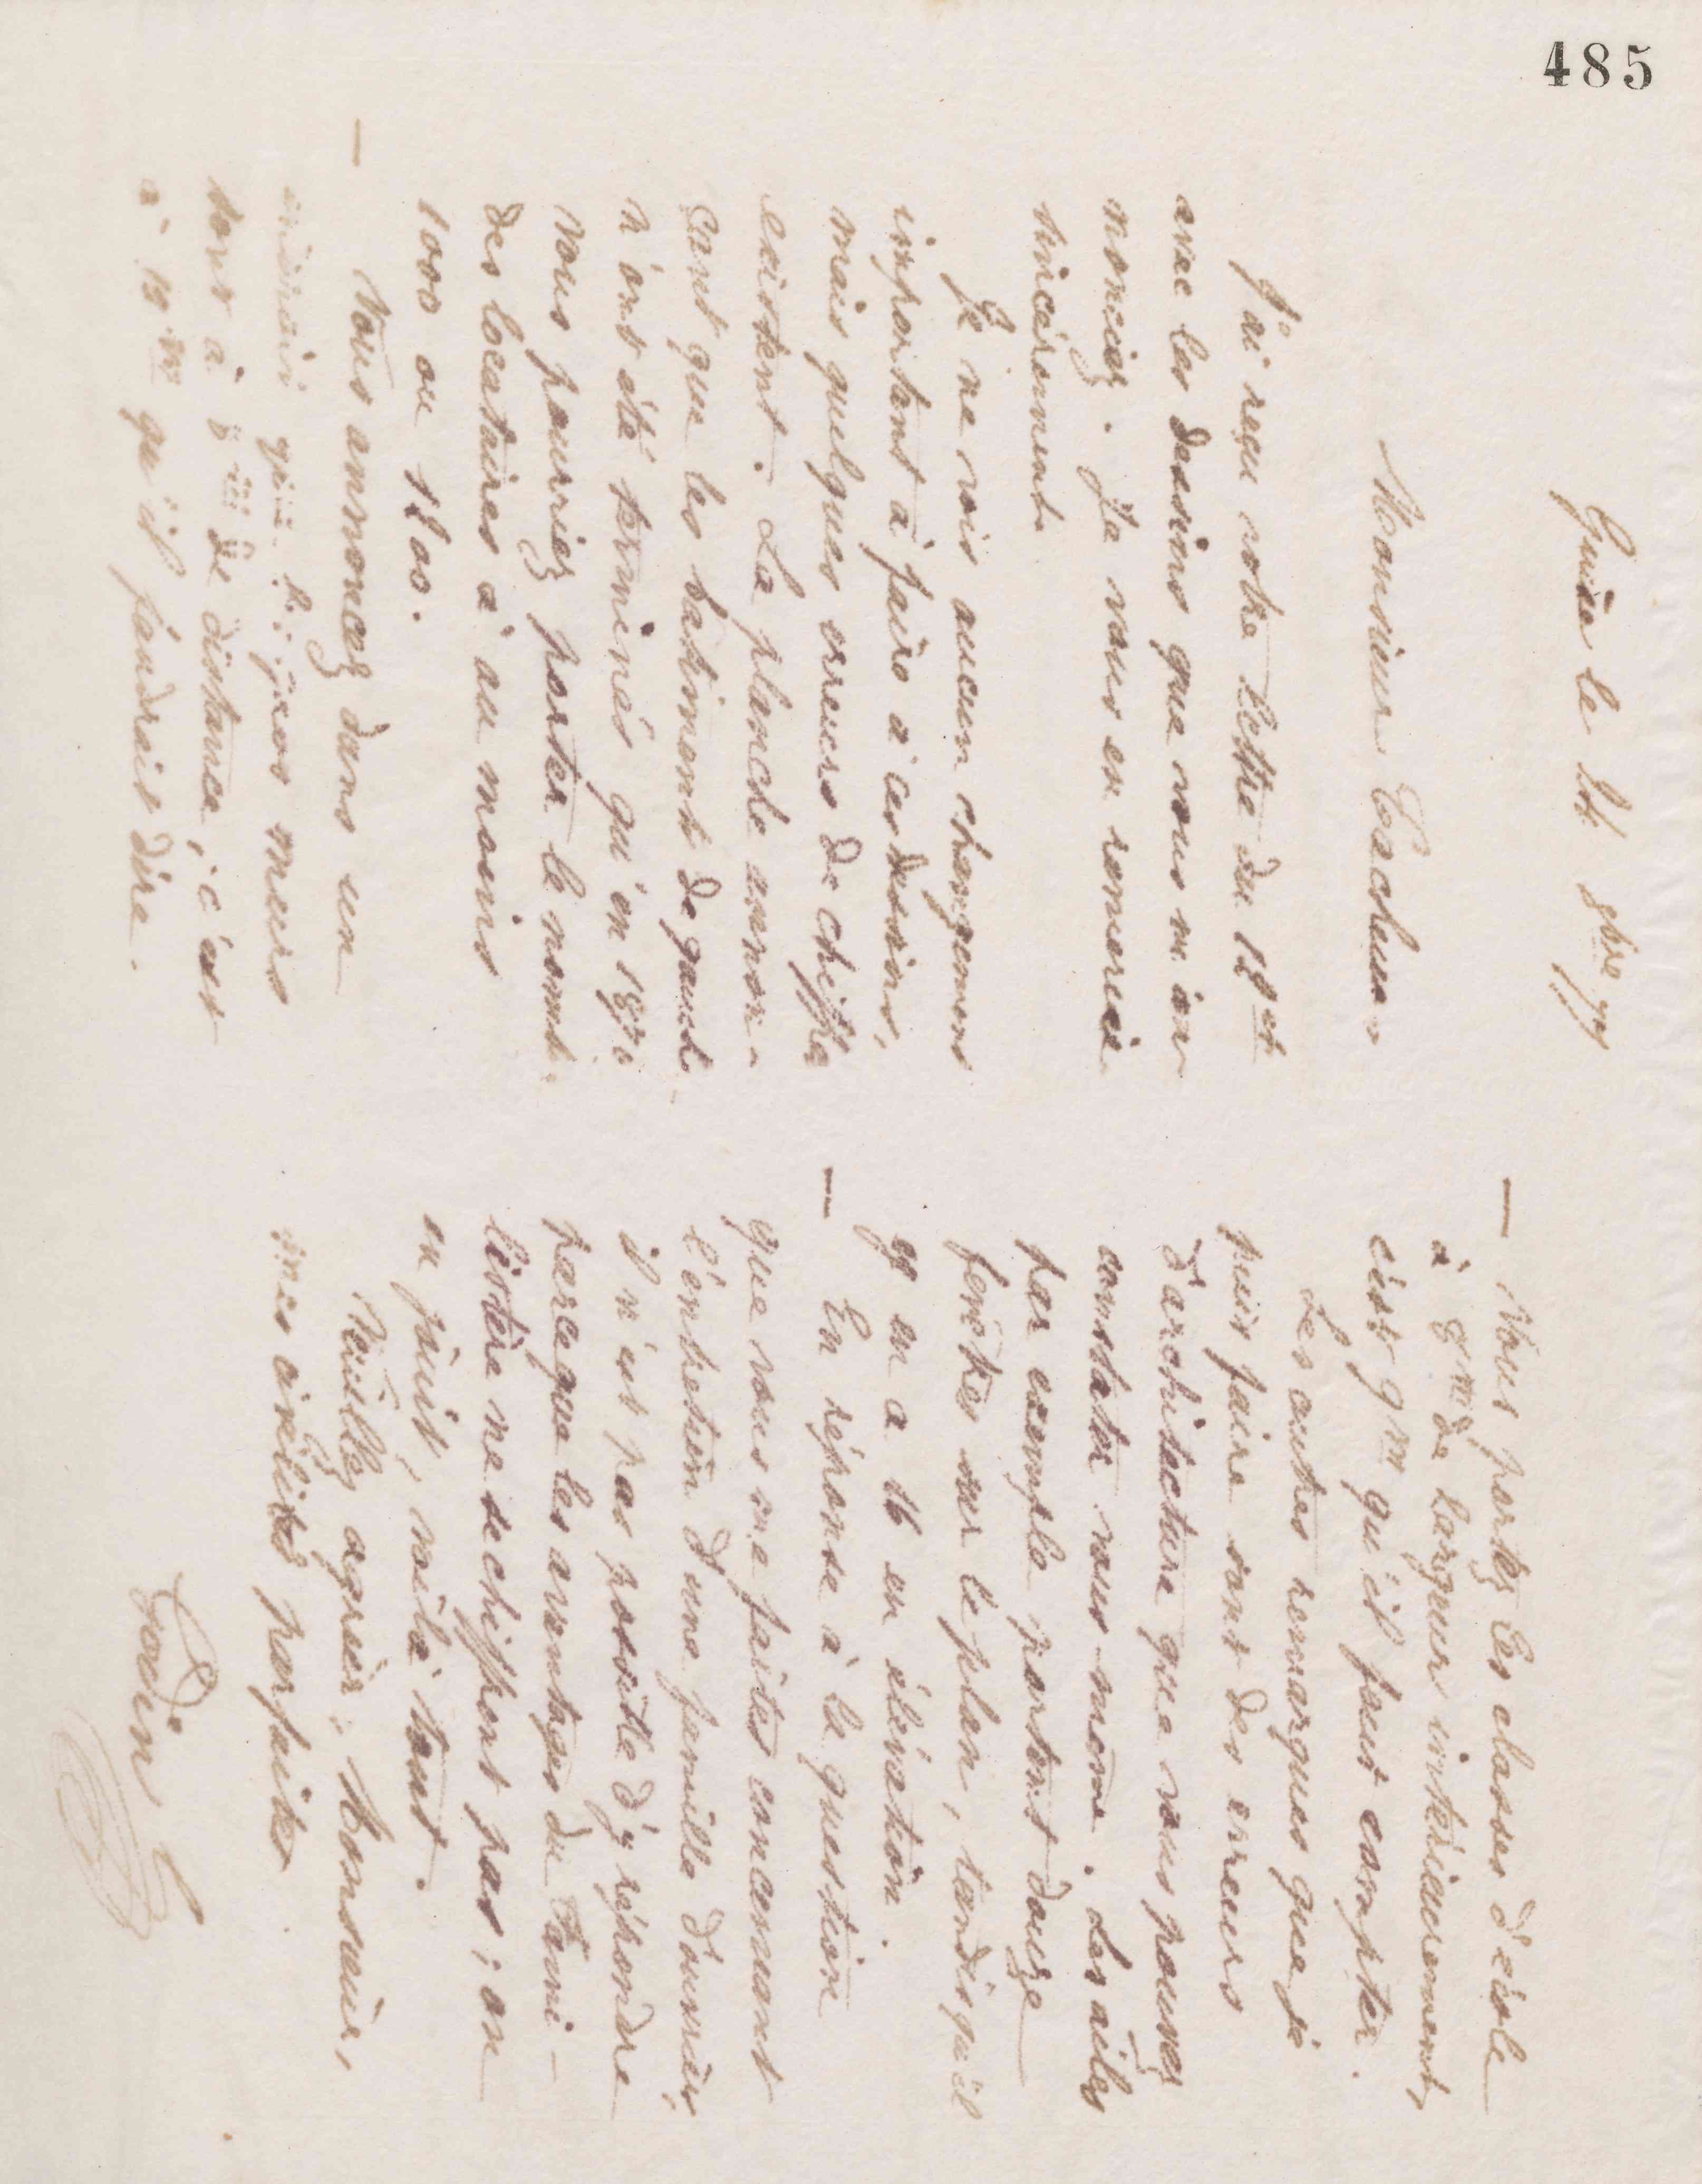 485
Guise le 24 8bre 77
Monsieur Cacheux
J'ai reçu votre lettre du 12 ct
avec les dessins que vous m'an
nonciez. Je vous en remercie
sincèrement.
Je ne vois aucun changement
important à faire à ces dessins,
mais quelques erreurs de chiffres
existent. La planche annon-
çant que les batiments de gauche
n'ont été terminés qu'en 1870
vous pourriez porter le nombre
des locataires à au moins
1000 ou 1200.
— Vous annoncez dans un
endroit que les gros murs
sont à de distance, c'est
à 10 m qu'il faudrait dire.
— Vous portez les classes d'école
à m de largeur intérieurement,
c'est 9 m qu'il faut compter.
Les autres remarques que je
puis faire sont des erreurs
d'architecture que vous pouvez
constater vous-même. Les ailes
par exemple portent douze
fenêtres sur le plan, tandis qu'il
y en a 16 en élévation.
— En réponse à la question
que vous me faites concernant
l'entretien d'une famille d'ouvrier,
il n'est pas possible d'y répondre
parceque les avantages du Fami-
listère ne se chiffrent pas; on
en jouit, voilà tout.
Veuillez agréer, Monsieur,
mes civilités parfaites
Godin